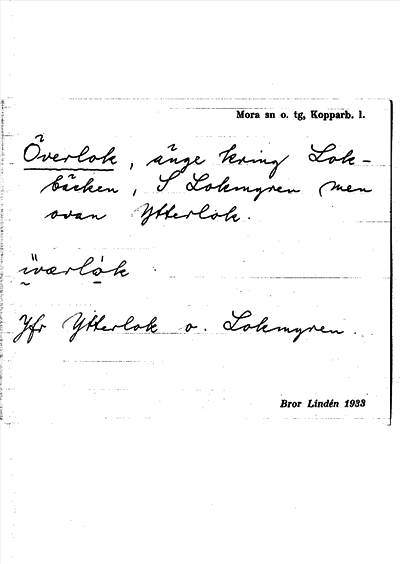 Mora sn o. tg, Kopparb. l.
Överlok, änge kring Lok-
bäcken, S Lokmyren men
ovan Ytterlok.
ìv̀ærlòk
Jfr Ytterlok o. Lokmyren.
Bror Lindén 1933